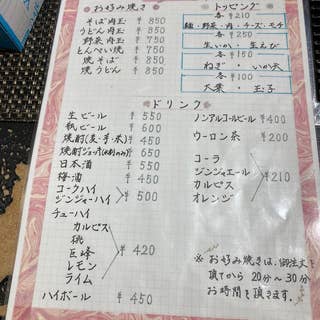 お好み焼き
そば肉玉 ¥850
うどん肉玉 ¥850
野菜肉玉 ¥850
とんぺい焼 ¥750
焼そば ¥850
焼うどん ¥850
トッピング
各 ¥210
麺・野菜・肉・チーズ・モチ
各 ¥250
生いか・生えび
各 ¥150
ねぎ・いか天
各 ¥100
大葉・玉子
ドリンク
生ビール ¥550
瓶ビール ¥600
焼酎(麦・芋・米) ¥450
¥650
日本酒 ¥550
梅酒 ¥450
コークハイ
ジンジャーハイ ¥500
チューハイ
カルピス
桃
巨峰
レモン
ライム
¥420
ハイボール ¥450
ノンアルコールビール ¥400
ウーロン茶 ¥200
コーラ
ジンジャエール
カルピス
オレンジ
¥210
※お好み焼きは、御注文を
頂てから 20分〜30分
お時間を頂きます。